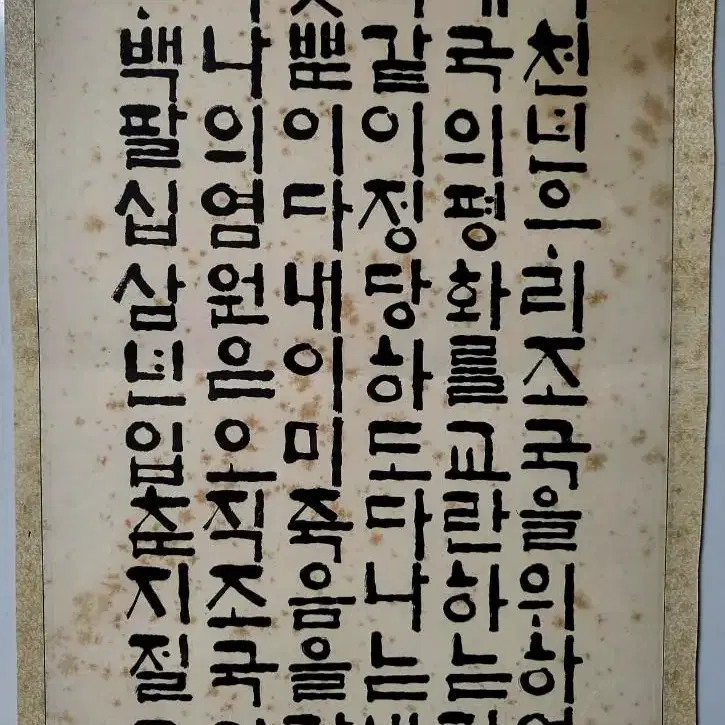 천년우리조국을위하
국의평화를교란하는
같이정당하도다나는
쁨이다내이미죽음을
나의염원은오직조국
백팔십삼년입춘지절